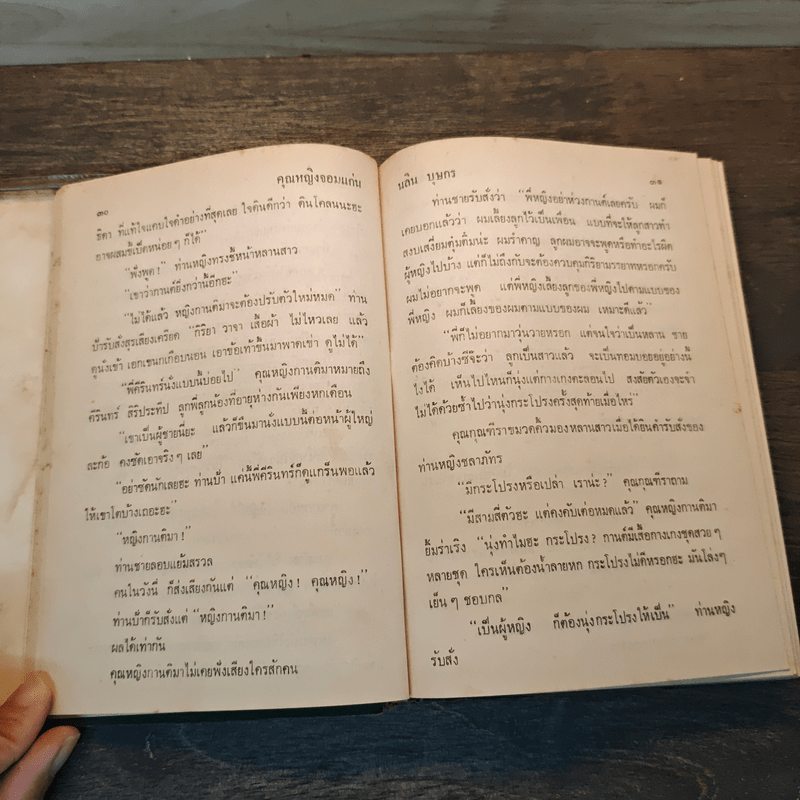 ๓๐
คุณหญิงจอมแก่น
ธิดา ที่แท้ใจแคบใจดำอย่างที่สุดเลย ใจดินดีกว่า ดินโคลนนะฮะ
อาจผสมขี้เป็ดหน่อยๆ ก็ได้”
“ฟังพูด!” ท่านหญิงทรงชี้หน้าหลานสาว
“เขาว่ากานต์ยิ่งกว่านี้อีกฮะ”
“ไม่ได้แล้ว หญิงกานติมาจะต้องปรับตัวใหม่หมด” ท่าน
ป้ารับสั่งสุรเสียงเครียด “กิริยา วาจา เสื้อผ้า ไม่ไหวเลย แล้ว
ดูนั่งเข้า เอกเขนกเกือบนอน เอาข้อเท้าขึ้นมาพาดเข่า ดูไม่ได้”
“พี่คีรินทร์นั่งแบบนี้บ่อยไป” คุณหญิงกานติมาหมายถึง
คีรินทร์ สิริประทีป ลูกพี่ลูกน้องที่อายุห่างกันเพียงหกเดือน
“เขาเป็นผู้ชายนี่ยะ แล้วก็ขืนมานั่งแบบนี้ต่อหน้าผู้ใหญ่
ละก้อ คงซัดเอาจริงๆ เลย”
“อย่าซัดนักเลยฮะ ท่านป้า แค่นี้พี่คีรินทร์ก็ดูแกร็นพอแล้ว
ให้เขาโตบ้างเถอะฮะ”
“หญิงกานติมา!”
ท่านชายลอบแย้มสรวล
คนในวังนี้ ก็ส่งเสียงกันแต่ “คุณหญิง! คุณหญิง!”
ท่านป้าก็รับสั่งแต่ “หญิงกานติมา!”
ผลได้เท่ากัน
คุณหญิงกานติมาไม่เคยฟังเสียงใครสักคน
นลิน บุษกร
๓๑
ท่านชายรับสั่งว่า “พี่หญิงอย่าห่วงกานต์เลยครับ ผมก็
เคยบอกแล้วว่า ผมเลี้ยงลูกไว้เป็นเพื่อน แบบที่จะให้ลูกสาวทำ
สงบเสงี่ยมตุ๋มติ๋มน่ะ ผมรำคาญ ลูกผมอาจจะพูดหรือทำอะไรผิด
ผู้หญิงไปบ้าง แต่ก็ไม่ถึงกับจะต้องควบคุมกิริยามรรยาทหรอกครับ
ผมไม่อยากจะพูด แต่พี่หญิงเลี้ยงลูกของพี่หญิงไปตามแบบของ
พี่หญิง ผมก็เลี้ยงของผมตามแบบของผม เหมาะดีแล้ว”
“พี่ก็ไม่อยากมาวุ่นวายหรอก แต่จนใจว่าเป็นหลาน ชาย
ต้องคิดบ้างซีจ๊ะว่า ลูกเป็นสาวแล้ว จะเป็นทอมบอยอยู่อย่างนี้
ไงได้ เห็นไปไหนก็นุ่งแต่กางเกงตะลอนไป สงสัยตัวเองจะจำ
ไม่ได้ด้วยซ้ำไปว่านุ่งกระโปรงครั้งสุดท้ายเมื่อไหร่”
คุณกุณฑีราขมวดคิ้วมองหลานสาวเมื่อได้ยินคำรับสั่งของ
ท่านหญิงชลาภัทร
“มีกระโปรงหรือเปล่า เราน่ะ?” คุณกุณฑีราถาม
“มีสามสี่ตัวฮะ แต่คงคับเต่อหมดแล้ว” คุณหญิงกานติมา
ยิ้มร่าเริง “นุ่งทำไมฮะ กระโปรง? กานต์มีเสื้อกางเกงชุดสวยๆ
หลายชุด ใครเห็นต้องน้ำลายหก กระโปรงไม่ดีหรอกฮะ มันโล่งๆ
เย็นๆ ชอบกล”
“เป็นผู้หญิง ก็ต้องนุ่งกระโปรงให้เป็น” ท่านหญิง
รับสั่ง